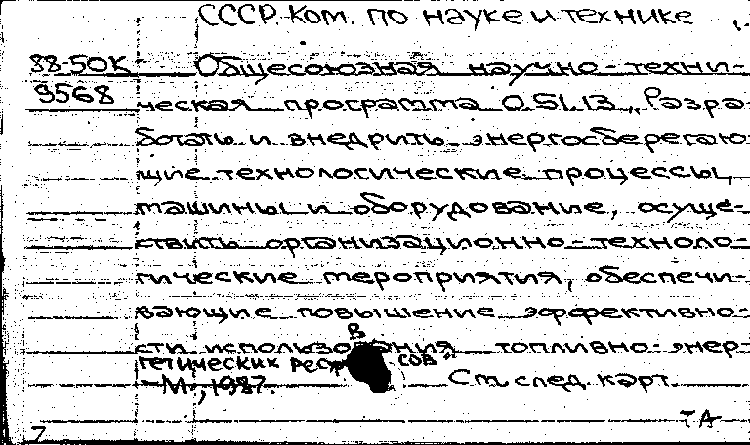 СССР. Ком. по науке и технике
88-50К Общесоюзная научно-техни-
9568 ческая программа 0.51.13 „Разра-
ботать и внедрить энергосберегаю-
щие технологические процессы,
машины и оборудование, осуще-
ствить организационно-техноло-
гические мероприятия, обеспечи-
вающие повышение эффективно-
сти использования топливно-энер-
гетических ресурсов".
-М., 1987. См. след. карт.
ТА
7